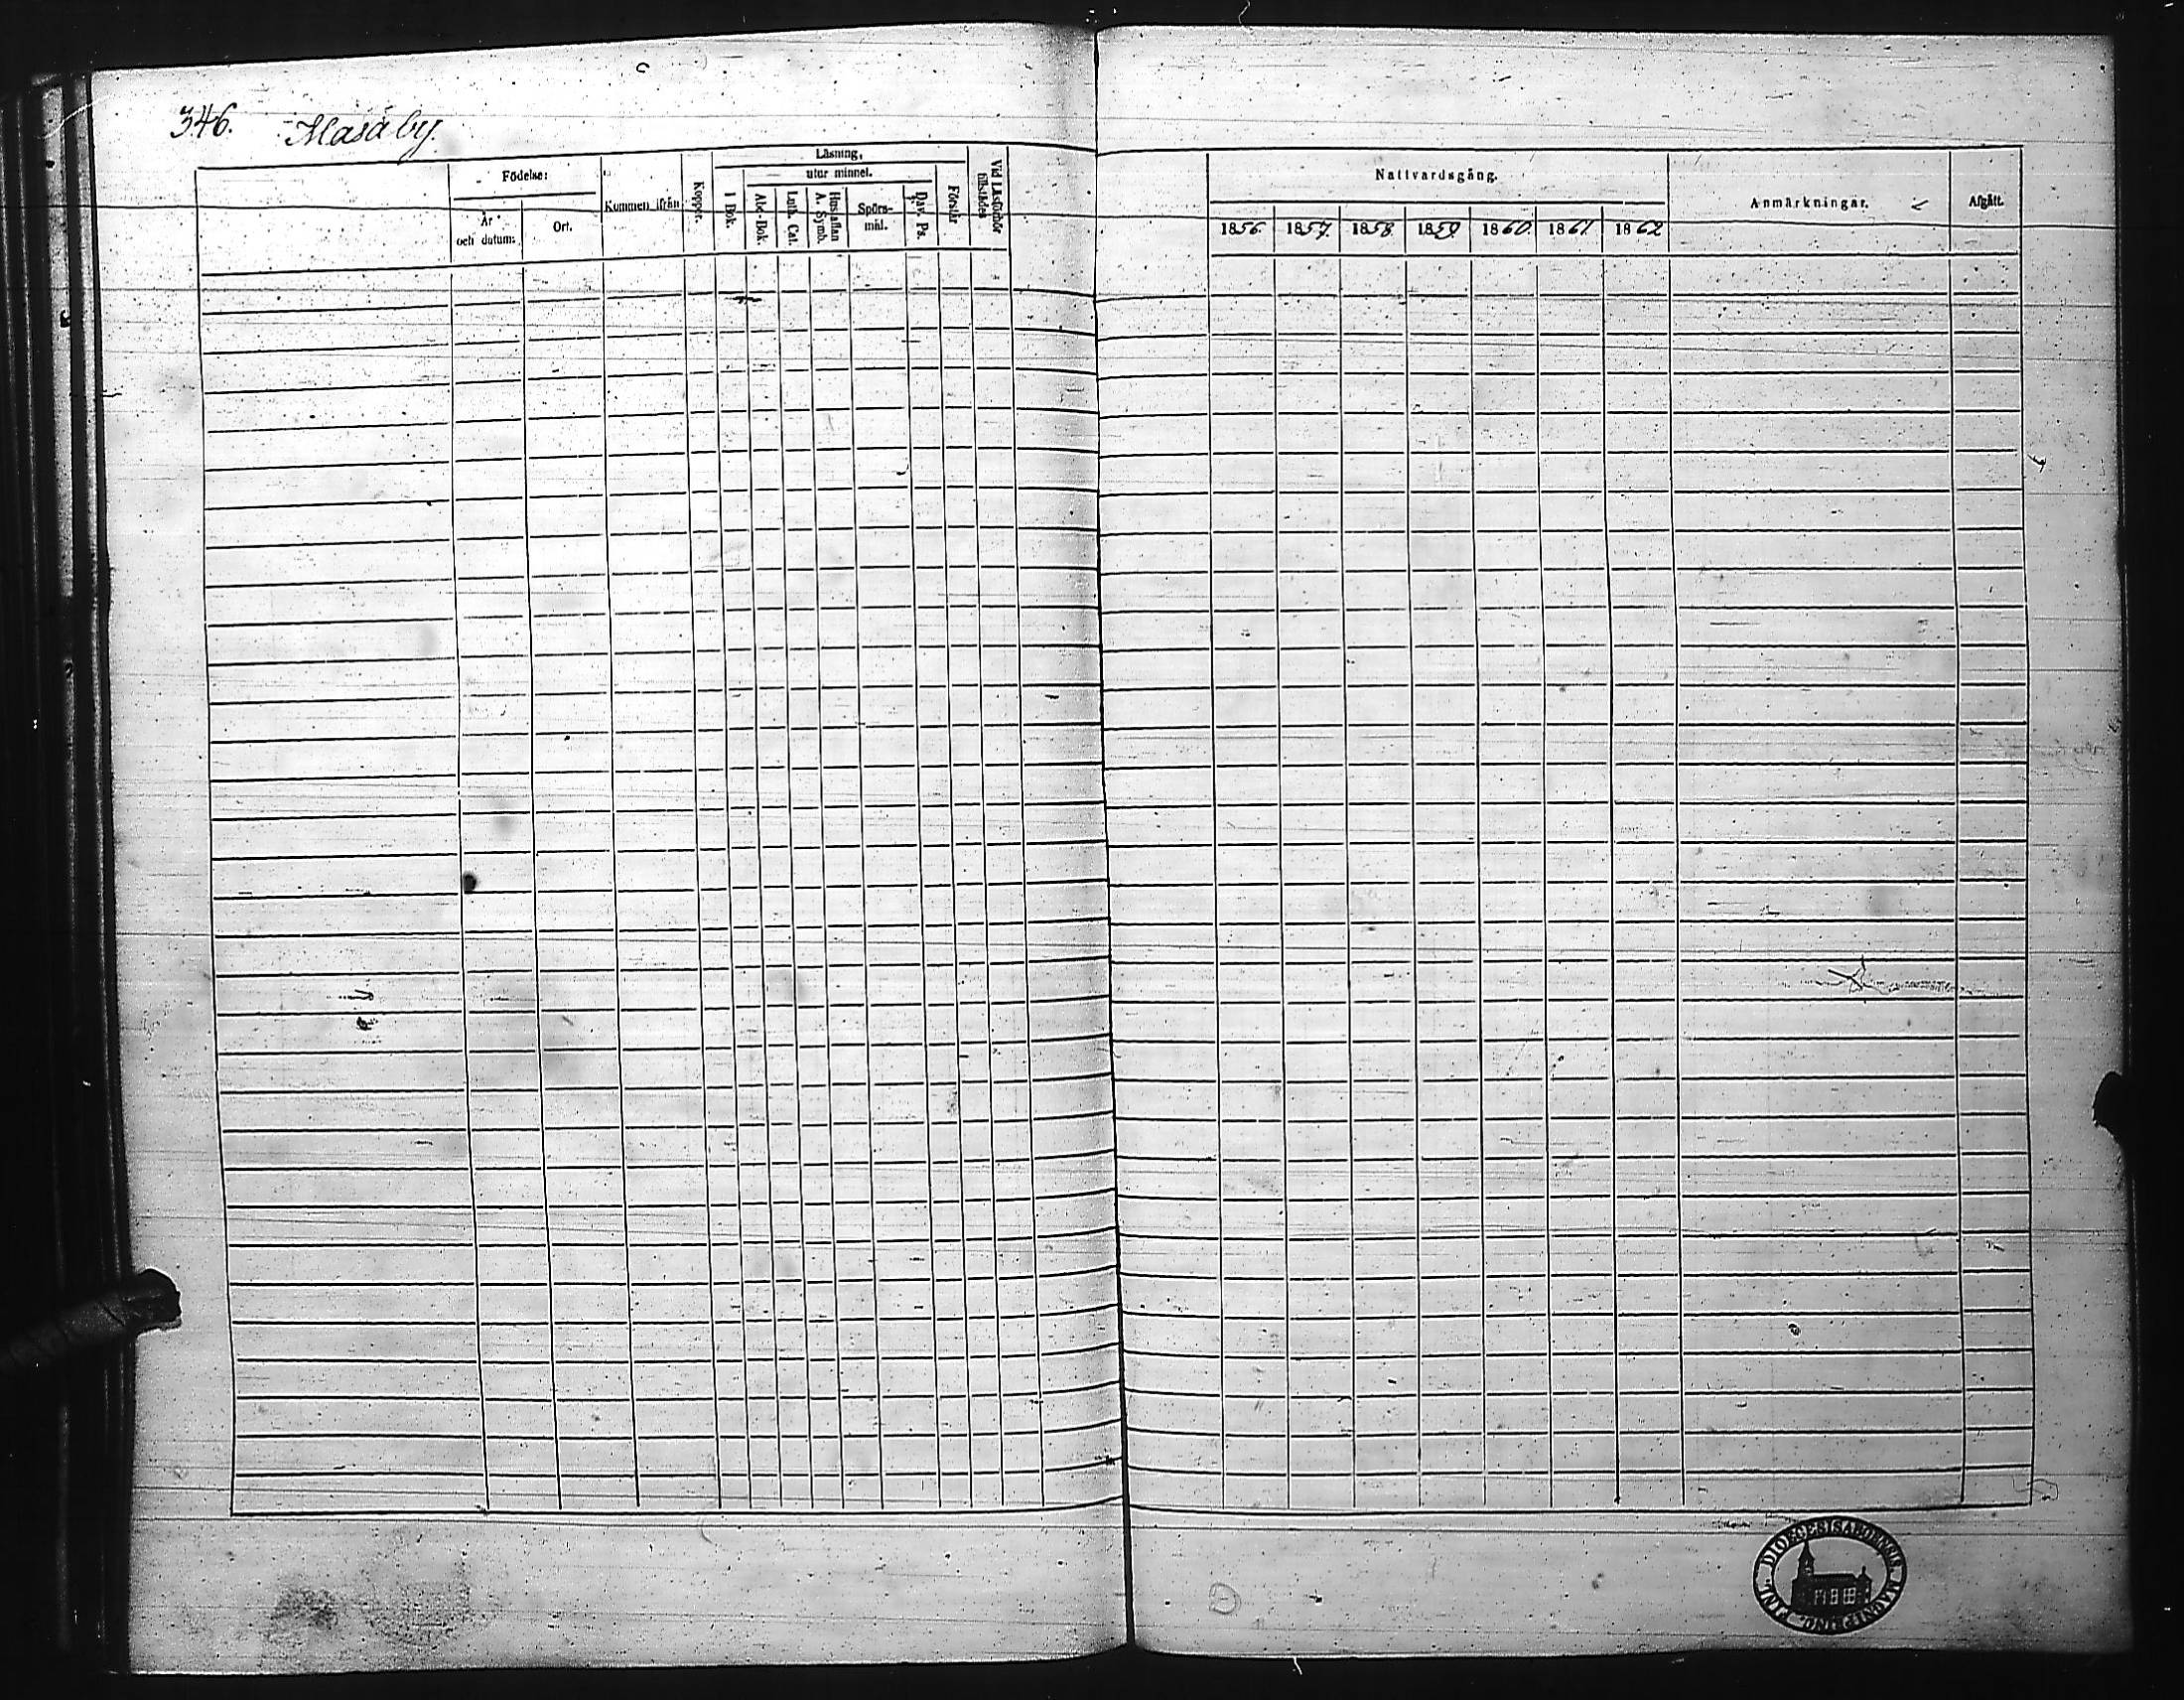 346. Masa by.
Födelse:
År och datum:
Ort.
Kommen ifrån
Koppor.
Läsning,
utur minnet.
I Bok.
Abc-Bok.
Luth. Cat.
Hustaflan A. Symb.
Spörs-mål.
Dav. Ps.
Förstår
Vid Läsförhör tillstädes
Nattvardsgång.
1856. 1857. 1858. 1859. 1860. 1861 1862
Anmärkningar.
Afgått.
DIOECESIS ABOENSIS MAGNI PRINC. FINL.